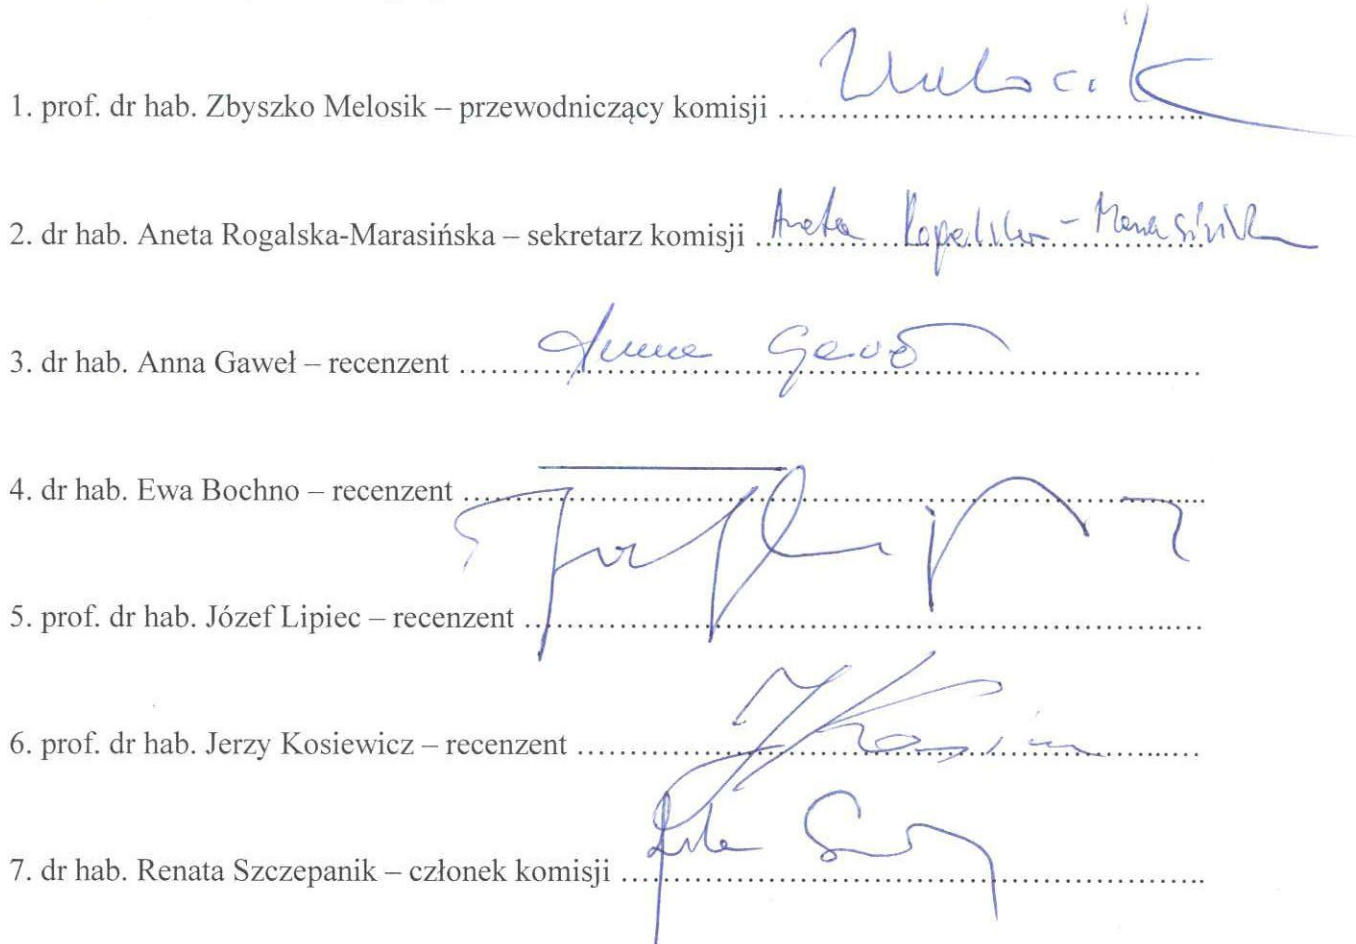 1. prof. dr hab. Zbyszko Melosik – przewodniczący komisji ........................................ Melosik
2. dr hab. Aneta Rogalska-Marasińska – sekretarz komisji ........................................ Aneta Rogalska-Marasińska
3. dr hab. Anna Gaweł – recenzent ........................................ Anna Gaweł
4. dr hab. Ewa Bochno – recenzent ........................................
5. prof. dr hab. Józef Lipiec – recenzent ........................................
6. prof. dr hab. Jerzy Kosiewicz – recenzent ........................................
7. dr hab. Renata Szczepanik – członek komisji ........................................